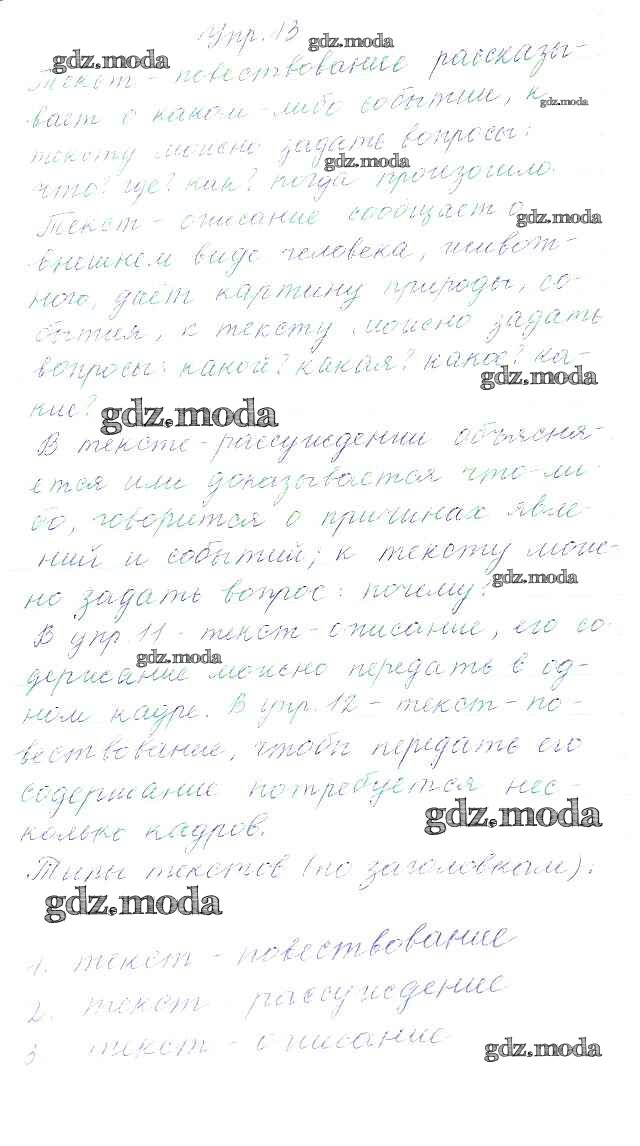 Упр. 13
gdz.moda
gdz.moda
Текст - повествование рассказы-
вает о каком-либо событии, к
gdz.moda
тексту можно задать вопросы:
gdz.moda
что? где? как? когда произошло.
Текст - описание сообщает о
gdz.moda
внешнем виде человека, живот-
ного, даёт картину природы, со-
бытия, к тексту можно задать
вопросы: какой? какая? какое? ка-
gdz.moda
кие?
gdz.moda
В тексте - рассуждении объясня-
ется или доказывается что-ли-
бо, говорится о причинах явле-
ний и событий; к тексту мож-
но задать вопрос: почему?
gdz.moda
В упр. 11 - текст - описание, его со-
gdz.moda
держание можно передать в од-
ном кадре. В упр. 12 - текст - по-
вествование, чтобы передать его
содержание потребуется нес-
gdz.moda
колько кадров.
Типы текстов (по заголовкам):
gdz.moda
1. текст - повествование
2. текст - рассуждение
3 текст - описание
gdz.moda